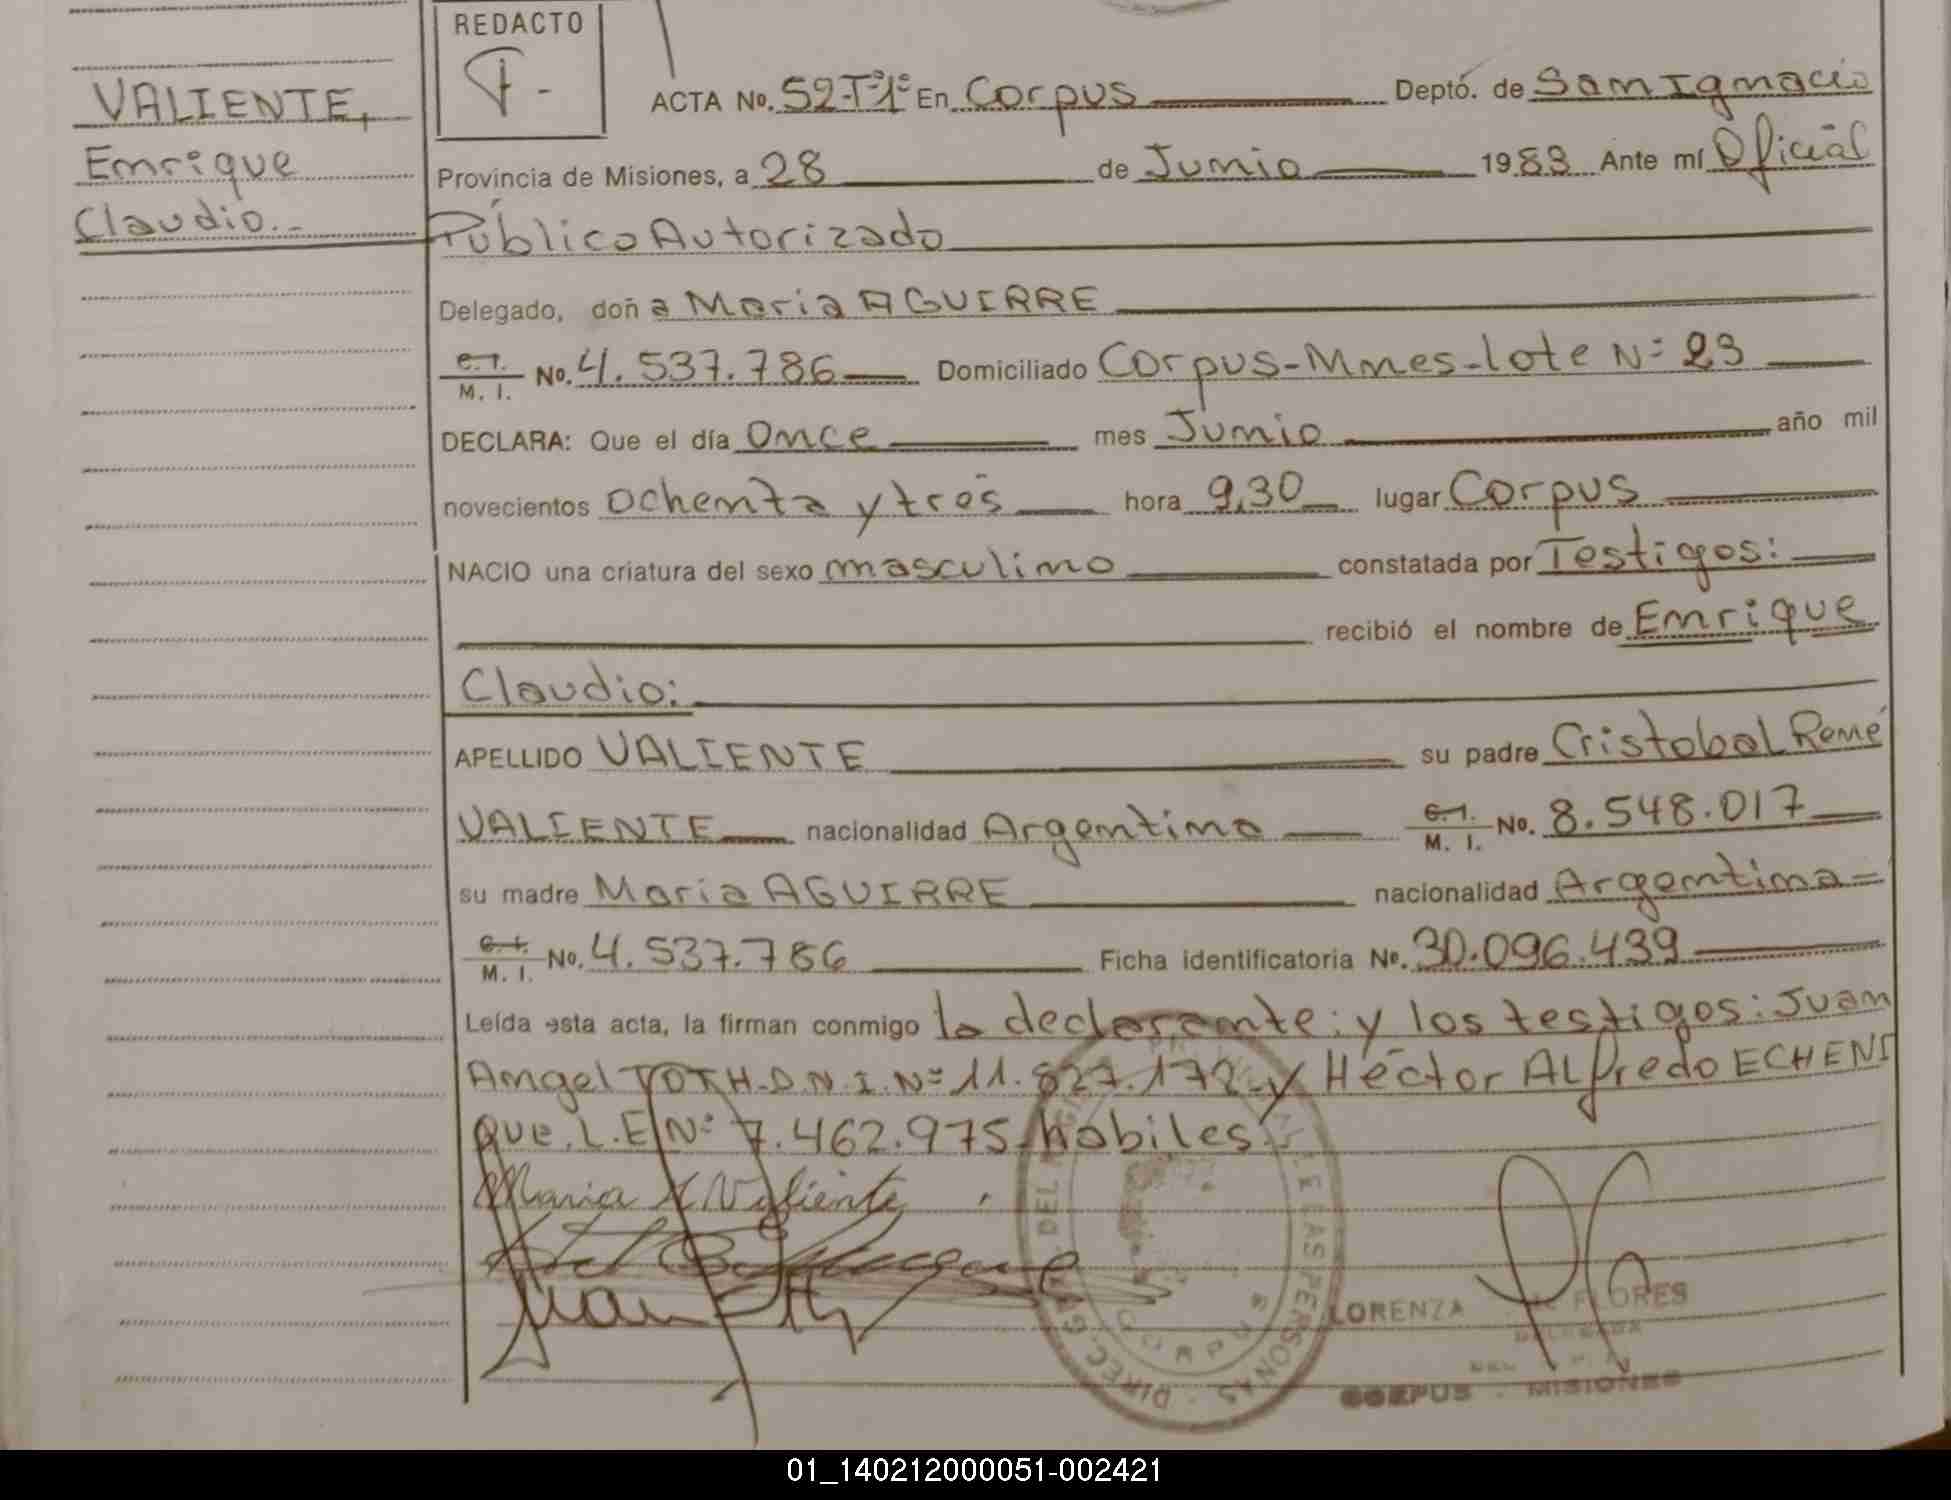 REDACTO
F.-
VALIENTE,
Enrique
Claudio.-
ACTA No. 52-Tº1º En Corpus Deptó. de San Ignacio
Provincia de Misiones, a 28 de Junio 1983 Ante mí Oficial
Público Autorizado
Delegado, doña Maria AGUIRRE
C. I. M. I. No. 4.537.786 Domiciliado Corpus-Mnes-lote Nº 23
DECLARA: Que el día Once mes Junio año mil
novecientos ochenta y tres hora 9,30 lugar Corpus
NACIO una criatura del sexo masculino constatada por Testigos:
recibió el nombre de Enrique
Claudio:
APELLIDO VALIENTE su padre Cristobal René
VALIENTE nacionalidad Argentino C. I. M. I. No. 8.548.017
su madre Maria AGUIRRE nacionalidad Argentina-
C. I. M. I. No. 4.537.786 Ficha identificatoria No. 30.096.439
Leída esta acta, la firman conmigo la declarante: y los testigos: Juan
Angel TOTH-D.N.I.Nº 11.827.172-y Héctor ALfredo ECHENI
que.L.E.Nº 7.462.975.habiles.
Maria A Valiente
Juan Toth
LORENZA FLORES
DELEGADA
CORPUS - MISIONES
01_140212000051-002421